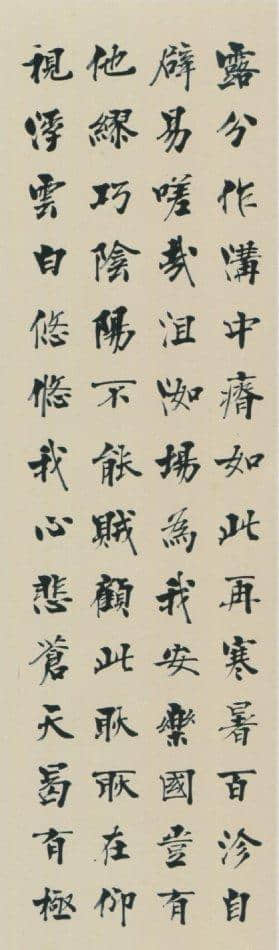 露分作溝中瘠如此再寒暑百沴自
辟易嗟哉沮洳場為我安樂國豈有
他繆巧陰陽不能賊顧此耿耿在仰
視浮雲白悠悠我心悲蒼天曷有極